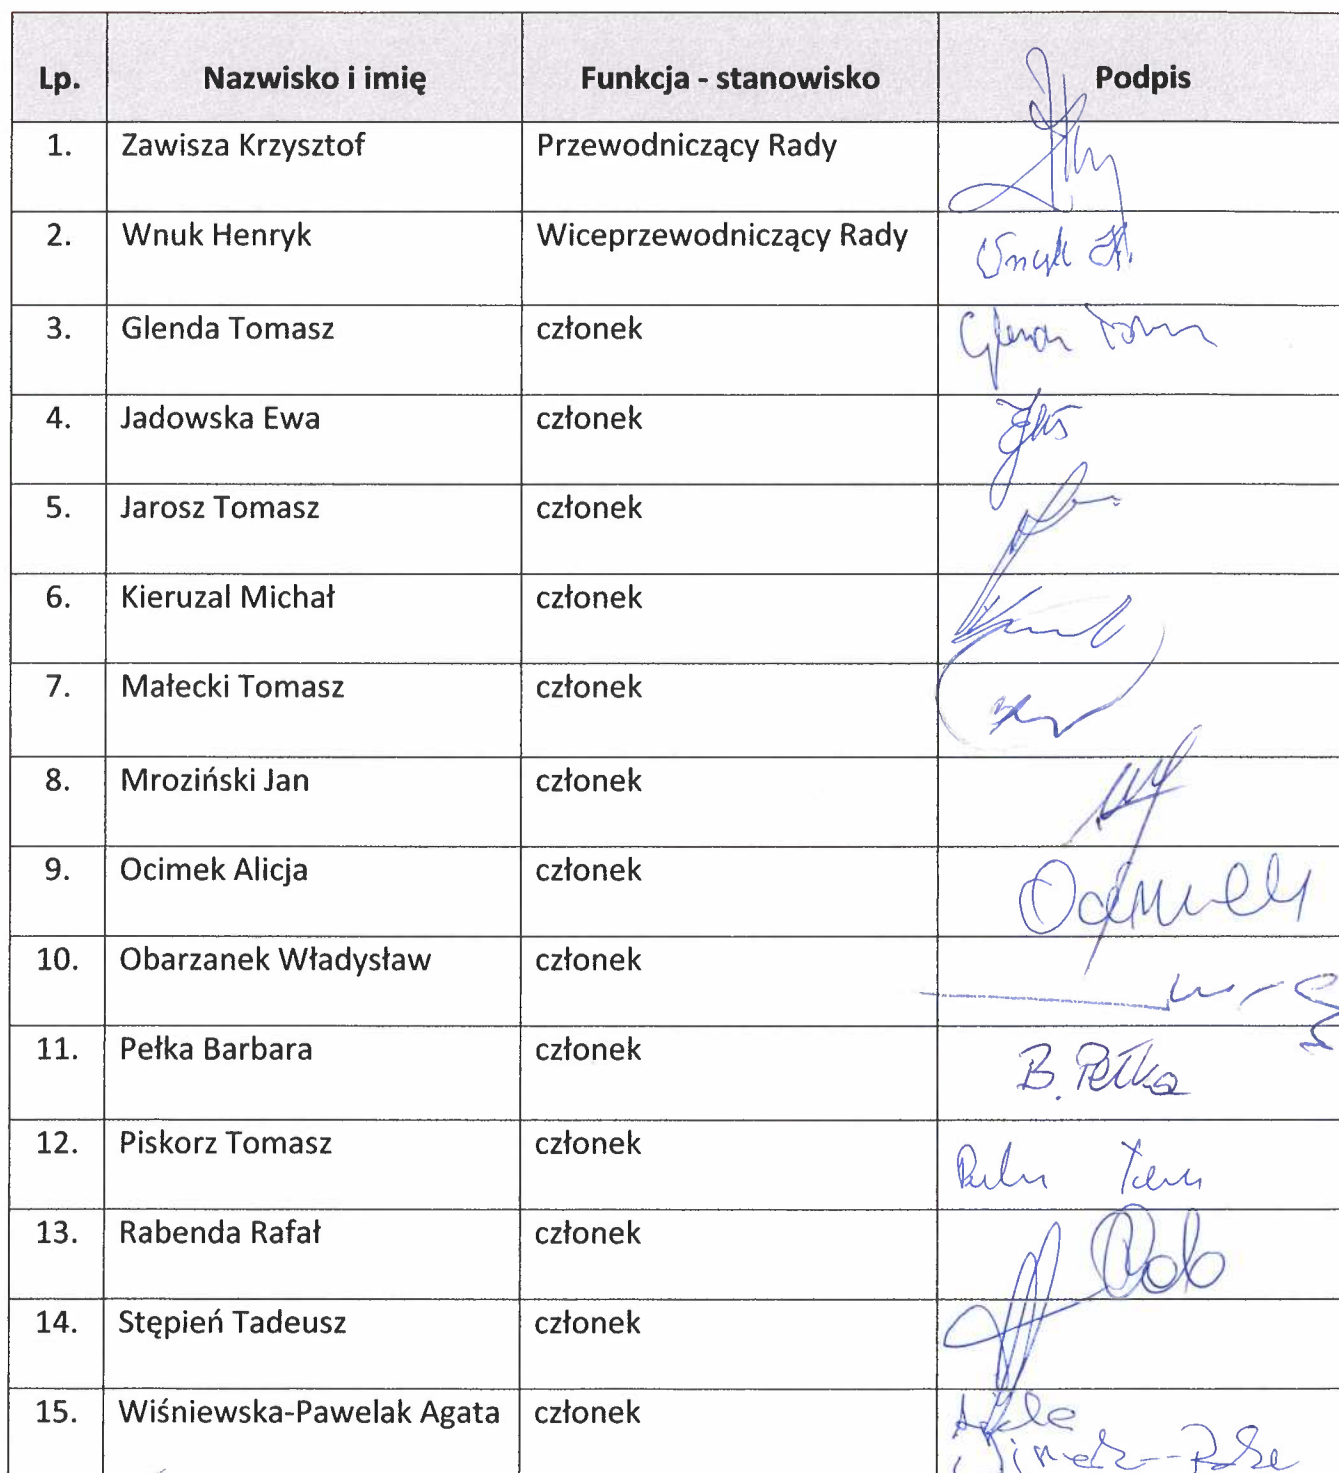 Lp. Nazwisko i imię Funkcja - stanowisko Podpis
1. Zawisza Krzysztof Przewodniczący Rady
2. Wnuk Henryk Wiceprzewodniczący Rady Wnuk H.
3. Glenda Tomasz członek
4. Jadowska Ewa członek
5. Jarosz Tomasz członek
6. Kieruzal Michał członek
7. Małecki Tomasz członek
8. Mroziński Jan członek
9. Ocimek Alicja członek Ocimek
10. Obarzanek Władysław członek
11. Pełka Barbara członek B. Pełka
12. Piskorz Tomasz członek
13. Rabenda Rafał członek
14. Stępień Tadeusz członek
15. Wiśniewska-Pawelak Agata członek